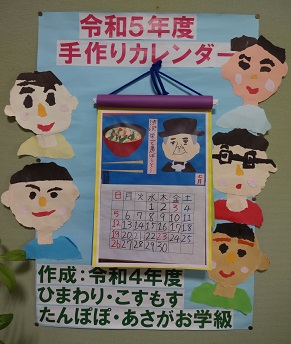 令和5年度
手作りカレンダー
日月火水木金土
1 2 3 4
5 6 7 8 9 10 11
12 13 14 15 16 17 18
19 20 21 22 23 24 25
26 27 28 29 30
作成：令和4年度
ひまわり・こすもす
たんぽぽ・あさがお学級